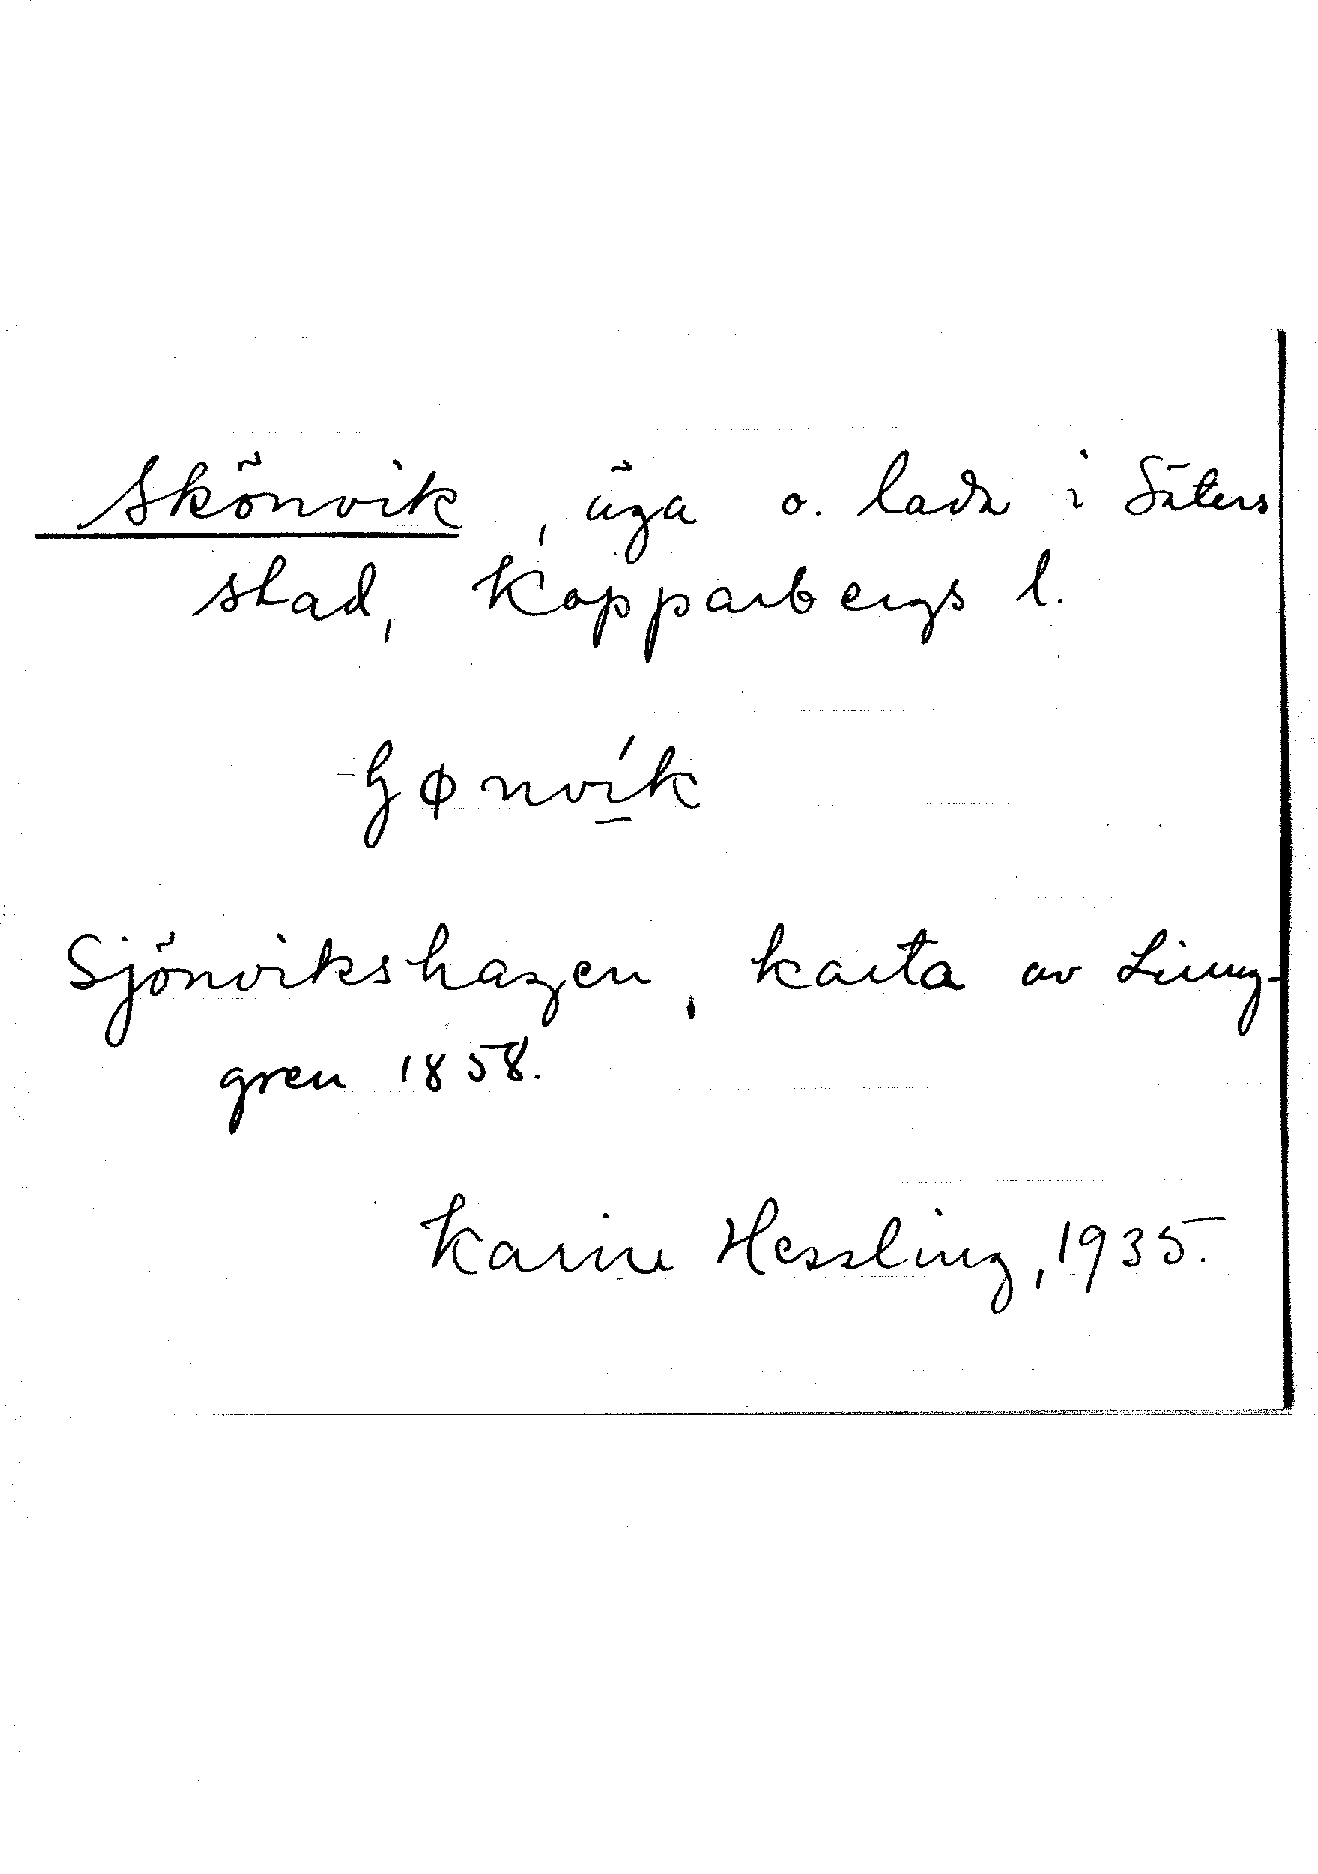 Skönvik, äga o. lada i Säters
stad, Kopparbergs l.
ɧɸnvík
Sjönvikshagen, karta av Ljung-
gren 1858.
Karin Hessling, 1935.